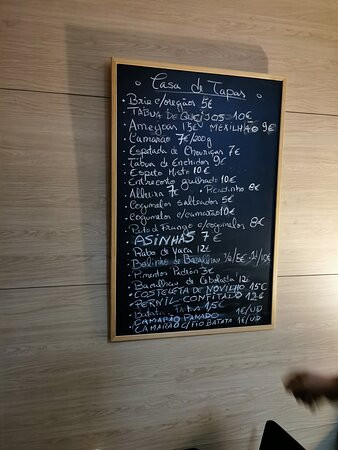 • Casa de Tapas •
• Brie c/oregãos 5€
• TÁBUA DE QUEIJOS 10€
• Ameijoas 15€ MEXILHÃO 9€
• Camarão 7€/200g
• Espetada de Chouriças 7€
• Tábua de Enchidos 9€
• Espeto Misto 10€
• Entrecosto grelhado 10€
• Alheira 7€ • 8€
• Cogumelos salteados 5€
• Cogumelos c/camarão 10€
• Peito d Frango c/cogumelos 8€
• ASINHAS 7€
• Rabo de Vaca 12€
• Bolinho de Bacalhau
• Pimentos Padrón 3€
• Bacalhau de Cebolada 12€
• COSTELETA DE NOVILHO 15€
• PERNIL CONFITADO 12€
• Batata
• CAMARÃO PANADO 1€/UD
• CAMARÃO C/FIO BATATA 1€/UD